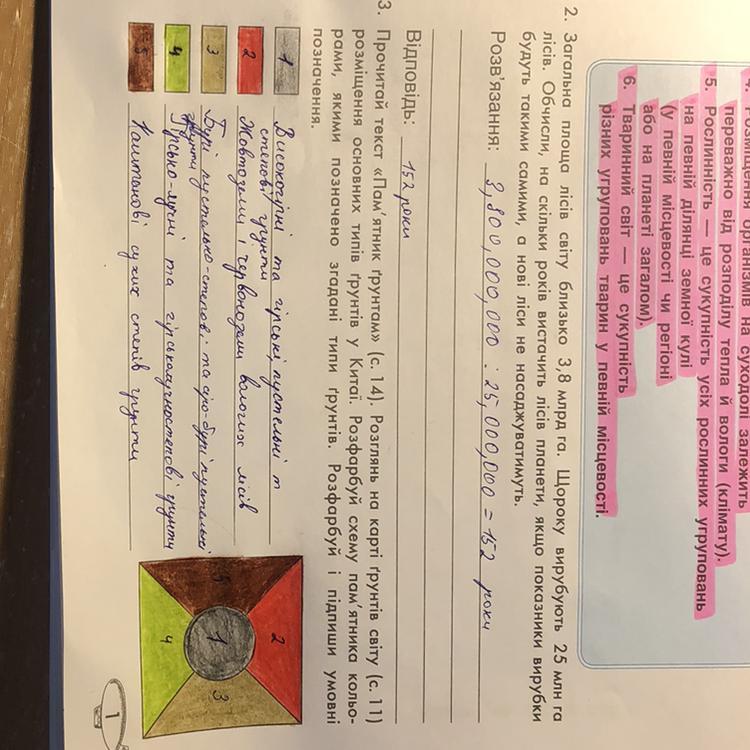 4. Розміщення організмів на суходолі залежить
переважно від розподілу тепла й вологи (клімату).
5. Рослинність — це сукупність усіх рослинних угруповань
на певній ділянці земної кулі
(у певній місцевості чи регіоні
або на планеті загалом).
6. Тваринний світ — це сукупність
різних угруповань тварин у певній місцевості.
2. Загальна площа лісів світу близько 3,8 млрд га. Щороку вирубують 25 млн га
лісів. Обчисли, на скільки років вистачить лісів планети, якщо показники вирубки
будуть такими самими, а нові ліси не насаджуватимуть.
Розв'язання: 3,800,000,000 : 25,000,000 = 152 роки
Відповідь: 152 роки
3. Прочитай текст «Пам'ятник ґрунтам» (с. 14). Розглянь на карті ґрунтів світу (с. 11)
розміщення основних типів ґрунтів у Китаї. Розфарбуй схему пам'ятника кольо-
рами, якими позначено згадані типи ґрунтів. Розфарбуй і підпиши умовні
позначення.
1 Високогірні та гірські, пустельні т
степові ґрунти
2 Жовтоземи і червоноземи вологих лісів
3 Бурі пустельно-степові та сіро-бурі пустельні
ґрунти
4 Гірсько-лучні та гірськолучностепові ґрунти
5 Каштанові сухих степів ґрунти
2
5 1 3
4
1